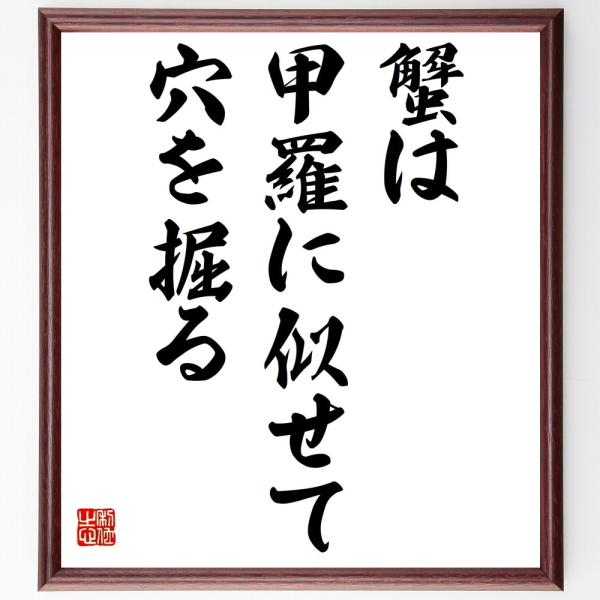 蟹は
甲羅に似せて
穴を掘る